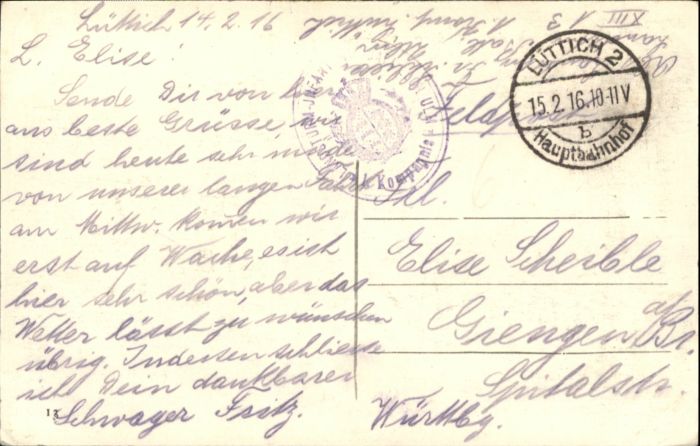 Lüttich 14.2.16
L. Elise!
Sende Dir von hier
aus beste Grüsse, wir
sind heute sehr müde
von unserer langen Fahrt
am Mittw. komen wir
erst auf Wache, es ist
hier sehr schön, aber das
Wetter lässt zu wünschen
übrig. Indessen schliesse
ich Dein dankbarer
Schwager Fritz.
13
XIII
Feldpost
LÜTTICH 2
15.2.16.10-11V
b
Hauptbahnhof
Kompagnie
Frl.
Elise Scheible
Giengen a/Br.
Spitalstr.
Württbg.